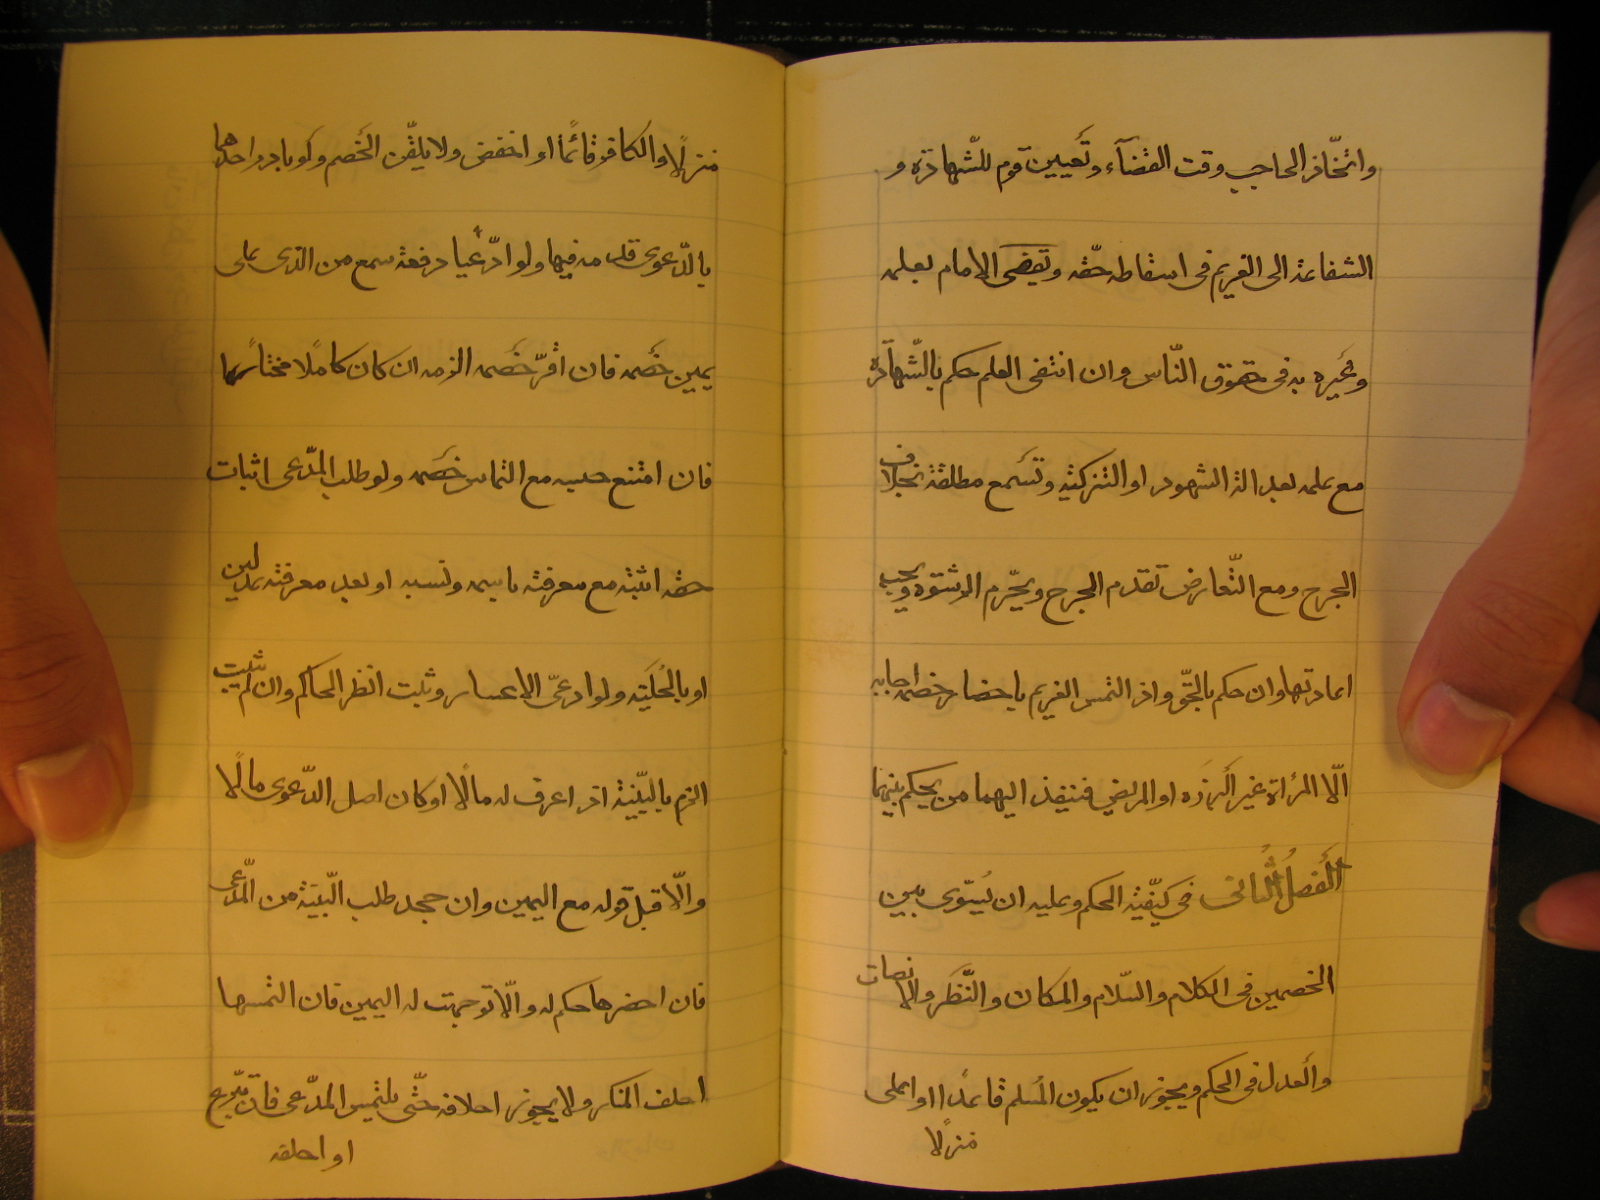 واتخّاذ الحاجب وقت القضآء وتَعيين قوم للشّهادة و
الشفاعة الى الغريم فى اسقاط حقّه وتقضى الامام بعلمه
وغَيره به فى حقوق النّاس وان انتفى العلم حكم بالشّهادَة
مع علمه بعدالة الشهود او التزكية وتَسمع مطلقة بخلاف
الجرح ومع التّعارض تقدم الجرح ويحّرم الرشوة ويجب
اعادتها وان حكم بالحّق واذ التمس الغريم باحضار خصمه اجابه
الّا المرُاة غير البَرَزه او المريض فينفذ اليهما من يحكم بينهما
الَفصلُ الثُانى فى كيّفية الحكم وعليه ان يُسّوى بين
الخصمين فى الكلام والسّلام والمكان والنّظَر والانصات
والَعدل فى الحكم ويجوز ان يكون المُسلم قاعداً او اعلى
منزلًا
منزلًا والكافر قائمًا او اخفض ولا يلقّن الخَصم ولو بادر احدهما
بالدّعوى قدمه فيها ولو ادّعَيا دفعة سمع من الذى على
يمين خَصمه فان اقرّ خَصمه الزمه ان كان كاملًا مختارًا
فان امتنع حبسه مع التماس خَصَمه ولو طلب المدّعى اثبات
حقه اثبته مع معرفته باسمه ونسبه او بعد معرفته عدلين
او بالحُليَته ولو ادعىّ الاعسار وثبت انظر الحاكم وان لم يثبت
الزم بالبيّنة اذ اعرف له مالًا او كان اصل الدّعوى مالًا
والّا قبل قوله مع اليمين وان جحد طلب البّيَنة من المدّعى
فان احضرها حكم له والّا توجهت له اليمين فان التمسها
احلف المنكر ولا يجوز احلافه حتّى يلتمس المدّعى فان تبّرع
او احلفه